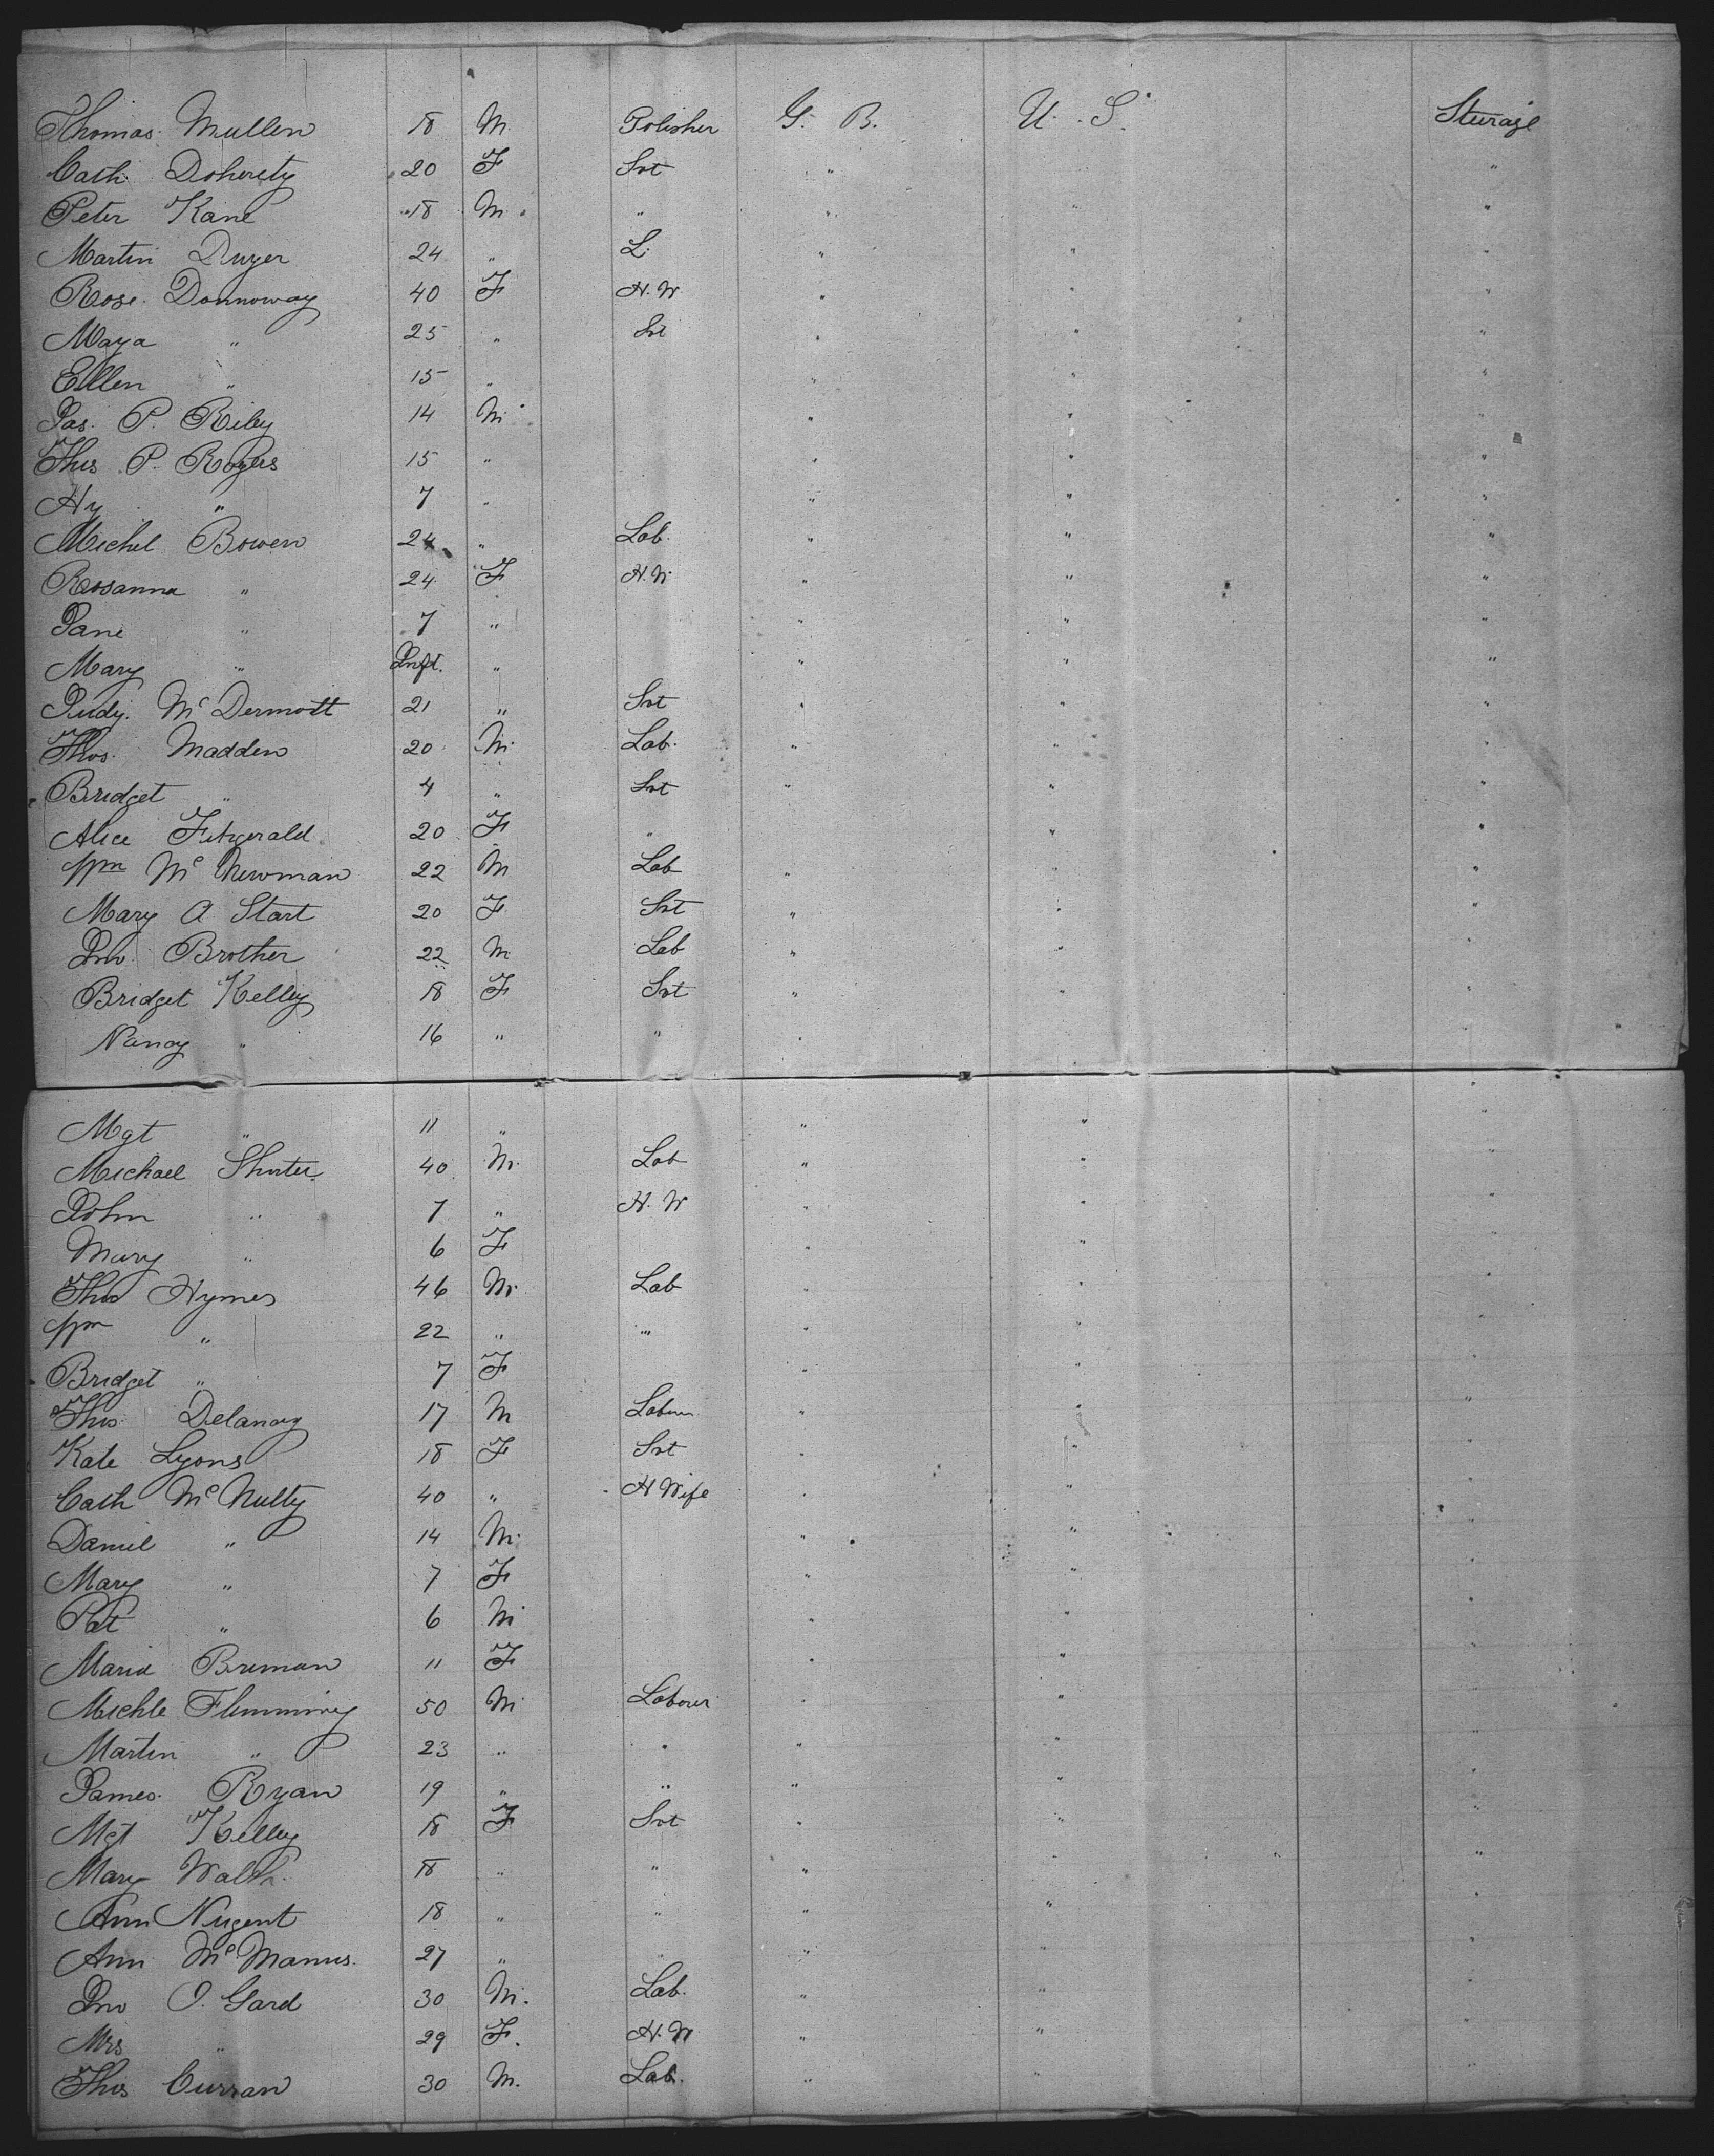 Thomas Mullen 18 M. Polisher G. B. U. S. Sturage
Cath. Doherety 20 F Svt " " "
Peter Kane 18 M. " " " "
Martin Dwyer 24 " L. " " "
Rose Donnoway 40 F H.W. " " "
Maya " 25 " Svt " " "
Ellen " 15 " " " "
Jas. P. Riley 14 M " " "
Thos P. Rogers 15 " " " "
Hy " 7 " " " "
Michel Bowen 24 " Lab. " " "
Rosanna " 24 F H.W. " " "
Jane " 7 " " " "
Mary " Inft. " " " "
Judy. McDermott 21 " Svt " " "
Thos. Madden 20 M. Lab. " " "
Bridget " 4 " Svt " " "
Alice Fitzgerald 20 F " " " "
Wm Mc Newman 22 M Lab " " "
Mary A Start 20 F Svt " " "
Jno. Brother 22 M Lab " " "
Bridget Kelley 18 F Svt " " "
Nancy " 16 " " " "
Mgt " 11 " " " "
Michael Shorter 40 M. Lab " " "
John " 7 " H. W " " "
Mary " 6 F " " "
Thos Hymes 46 M. Lab " " "
Wm " 22 " " " " "
Bridget " 7 F " " "
Thos. Delanay 17 M Labour " " "
Kate Lyons 18 F Svt " " "
Cath McNulty 40 " H Wife " " "
Daniel " 14 M. " " "
Mary " 7 F " " "
Pat " 6 M " " "
Maria Breman 11 F " " "
Michle Flemming 50 M Labour " " "
Martin " 23 " " " " "
James. Ryan 19 " " " " "
Mgt Kelley 18 F Svt " " "
Mary Walsh. 18 " " " " "
Ann Nugent 18 " " " " "
Ann McManus. 27 " " " " "
Jno O. Gard 30 M. Lab. " " "
Mrs " 29 F. H.W " " "
Thos Curran 30 M. Lab. " " "